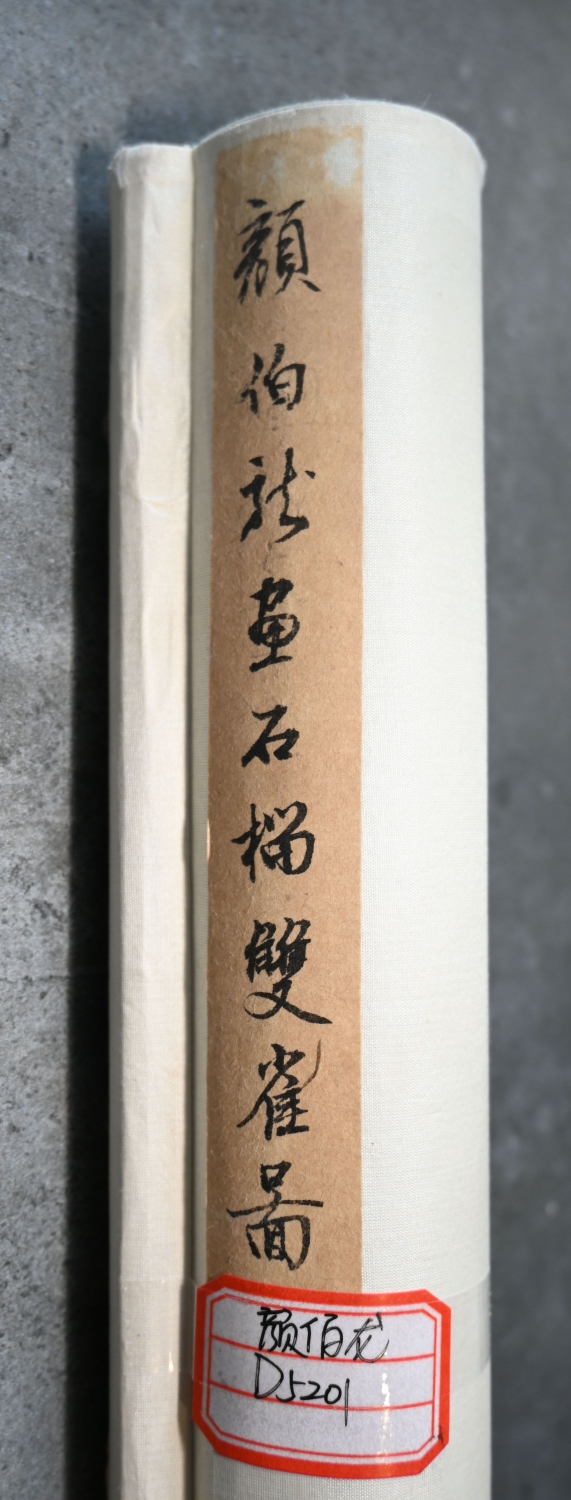 顔伯龙畫石榴雙雀圖
颜伯龙
D5201